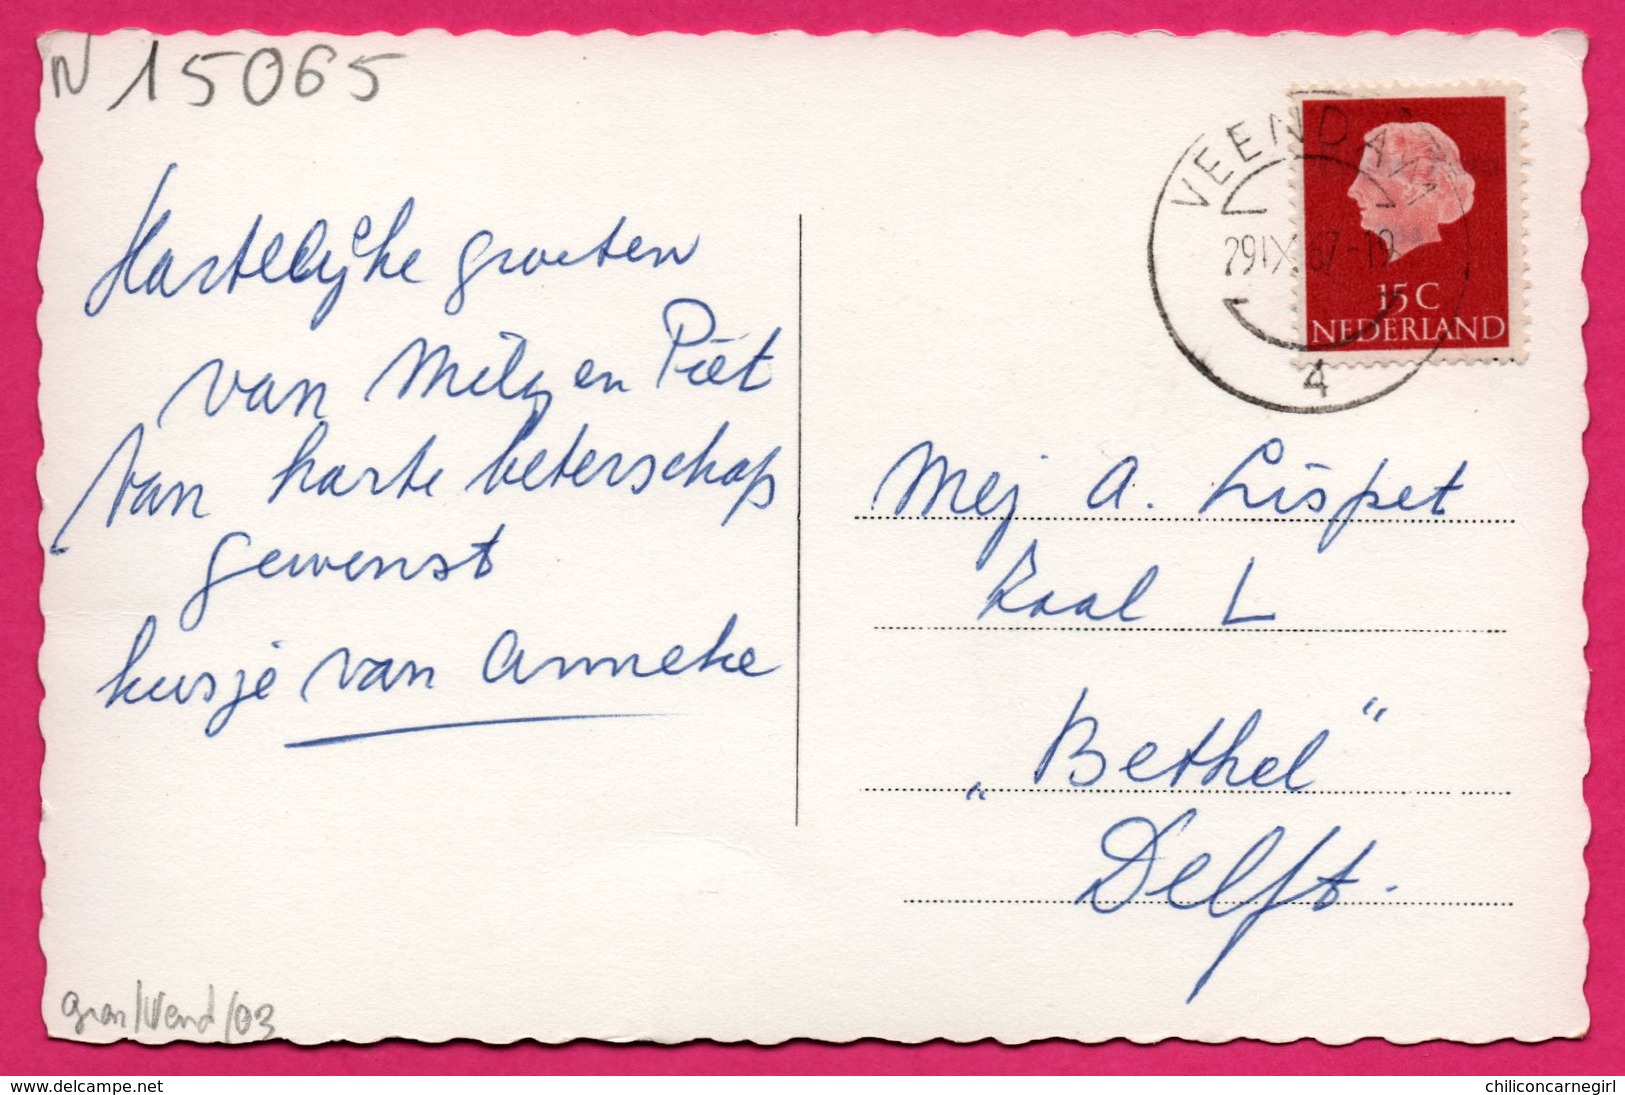 N 15065
Hartelijke groeten
van Mila en Piet
Van harte beterschap
gewenst
kusje van Anneke
VEENDAM
29 IX 67-19
4
15 C
NEDERLAND
Mej A. Lispet
Zaal L
„Bethel“
Delft.
gron/Vend/03
delcampe.net
chiliconcarnegirl